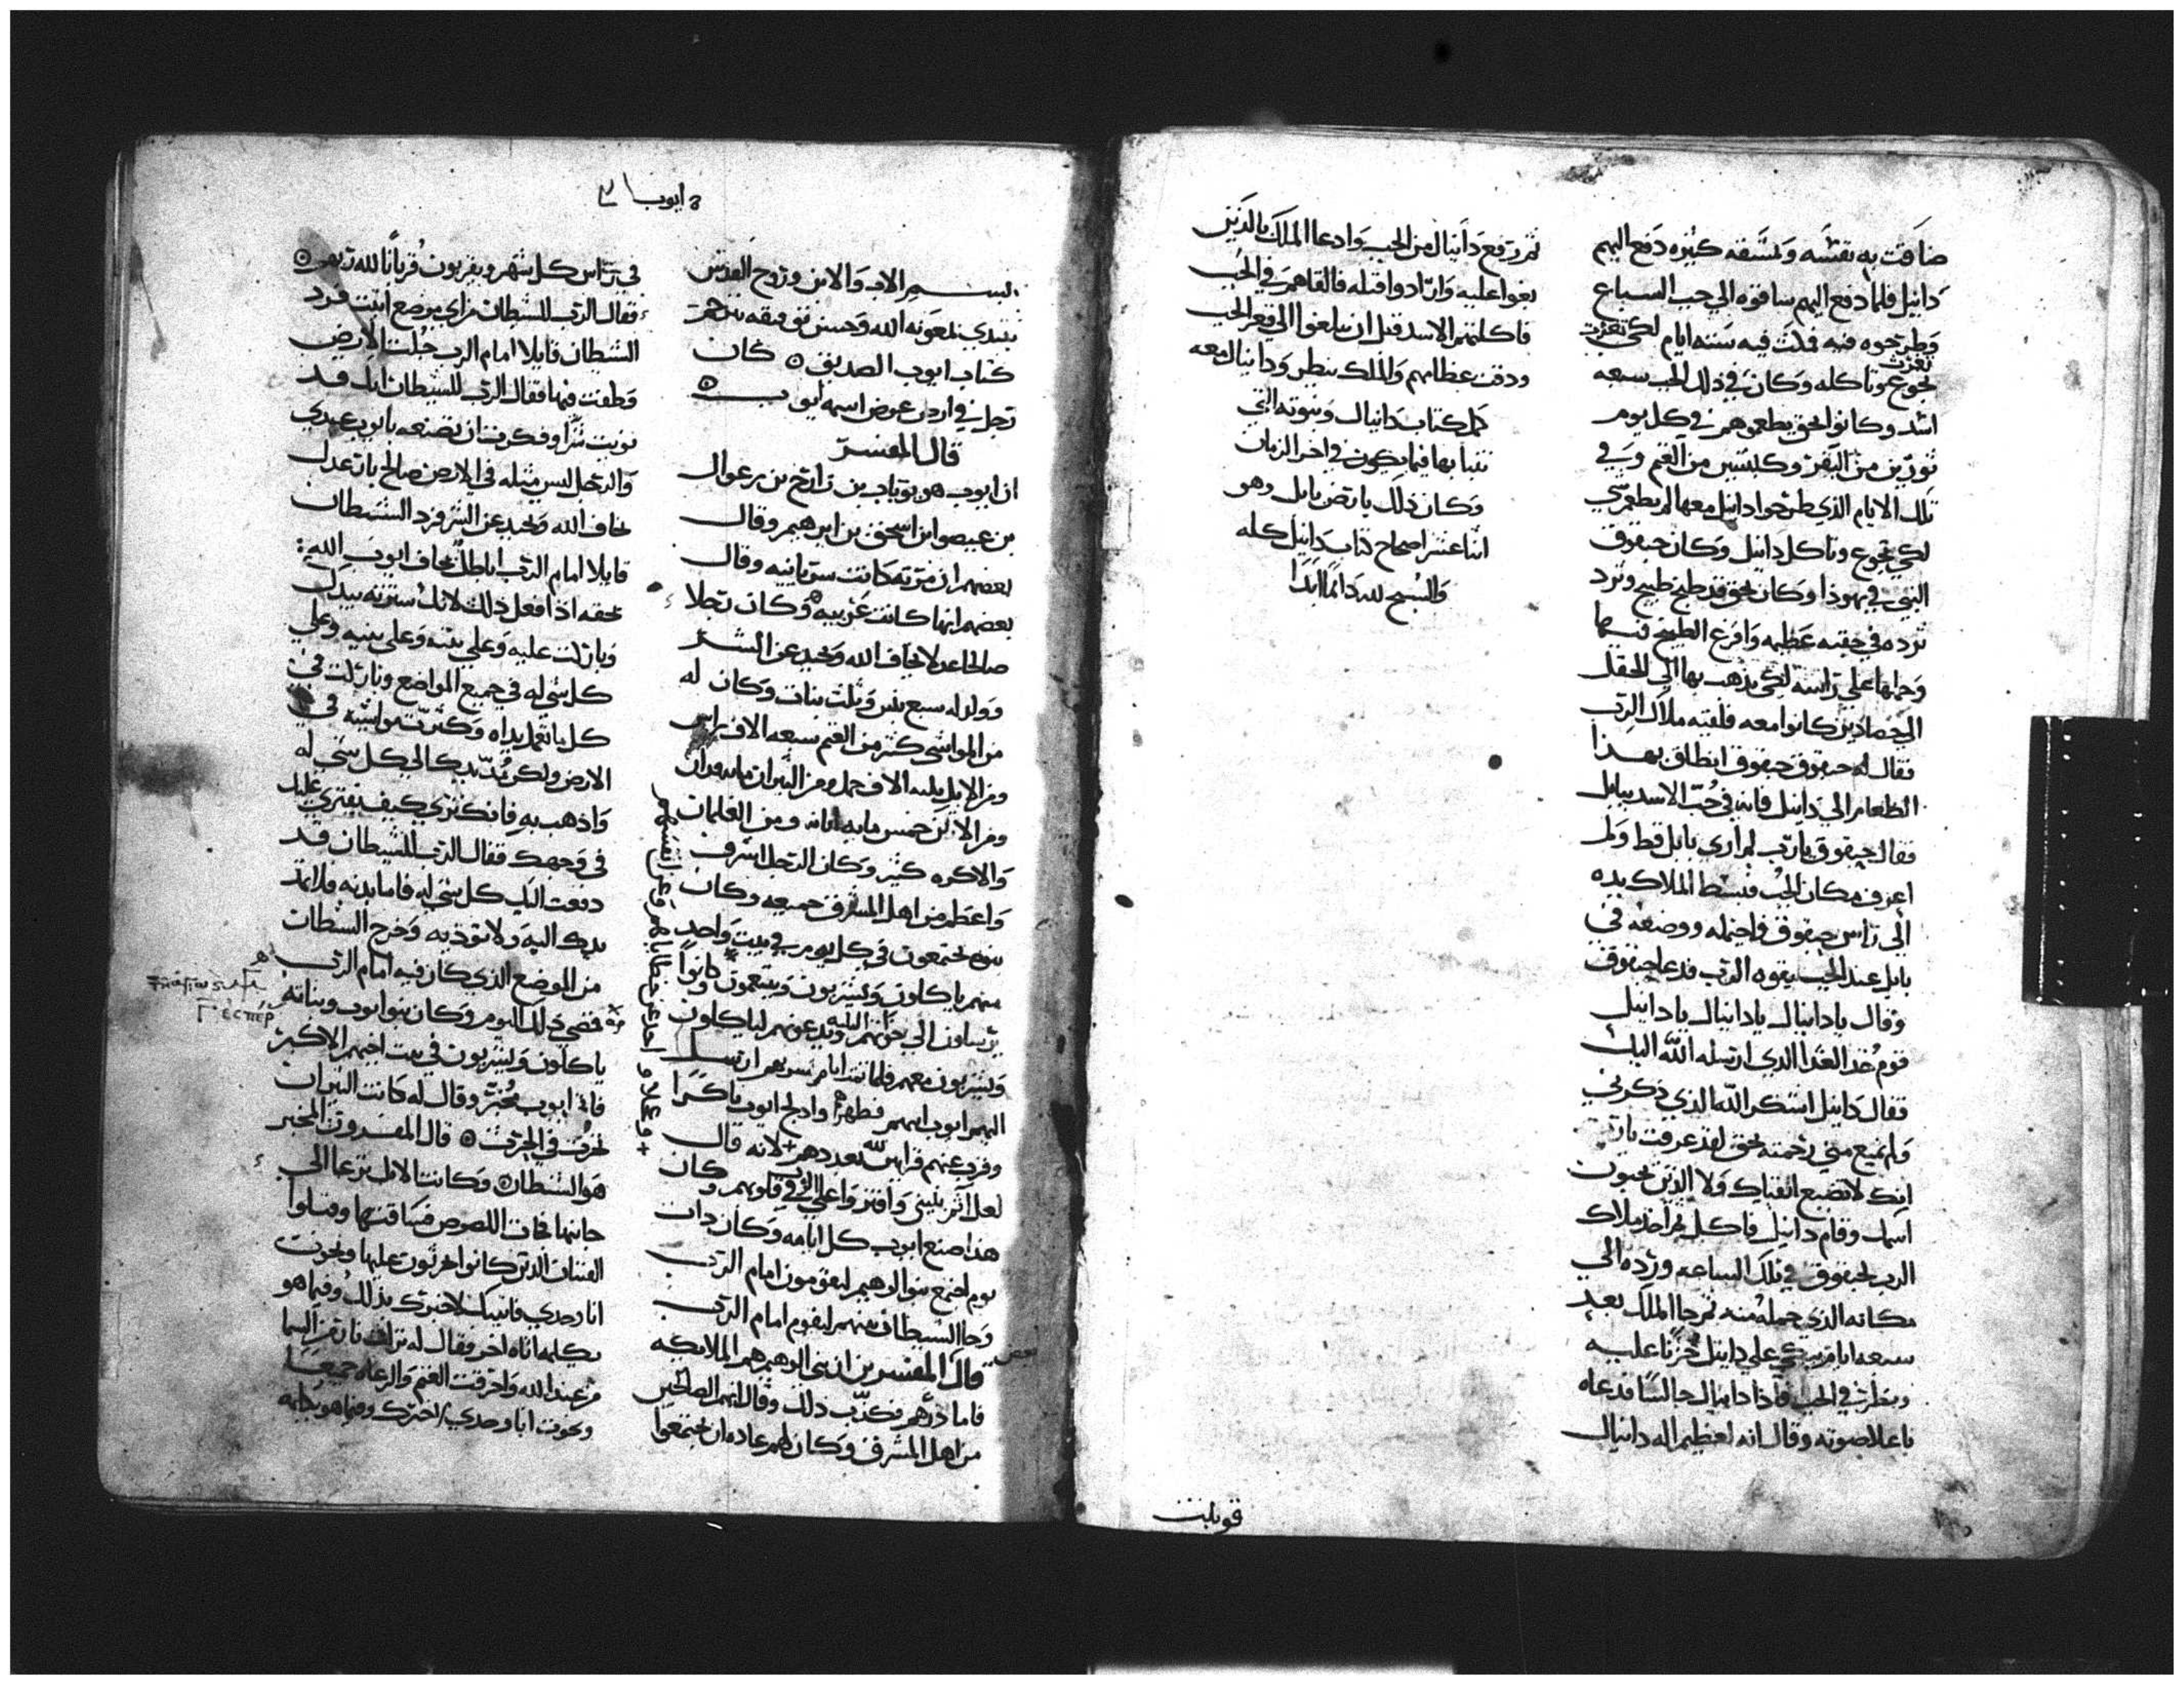 ضاقت به نفسه ولمشقه كثيره دفع اليهم
دانيل فلما دفع اليهم ساقوه الي جب السباع
وطرحوه فيه فمكث فيه سته ايام لكي
تجوع وتاكله وكان في ذلك الجب سبعه
اسد وكانوا بحق يطعموهم في كل يوم
ثورين من البقر وكبشين من الغنم وفي
تلك الايام الذي طرحوا دانيل معها لم يطعم شي
لكي تجوع وتاكل دانيل وكان حبقوق
النبي في يهوذا وكان بحق قد طبخ طبيخ وثرد
ثرده في جفنه عظيمه وافرغ الطبيخ فيها
وحملها علي راسه لكي يذهب بها الي الحقل
الي حصادين كانوا معه فلقيه ملاك الرب
فقال له حبقوق حبقوق انطلق بهذا
الطعام الي دانيل فانه في جب الاسد ببابل
فقال حبقوق يا رب لم اري بابل قط ولم
اعرف مكان الجب فبسط الملاك يده
الي راس حبقوق واحتمله ووضعه في
بابل عند الجب بقوه الرب فدعا حبقوق
وقال يا دانيال يا دانيال يا دانيل
قوم خذ الغدا الذي ارسله الله اليك
فقال دانيل اشكر الله الذي ذكرني
ولم تمنع مني رحمته بحق لقد عرفت يا رب
انك لا تضيع اتقياك ولا الذين يحبون
اسمك وقام دانيل فاكل ثم اخذ ملاك
الرب لحبقوق في تلك الساعه ورده الي
مكانه الذي حمله منه ثم جا الملك بعد
سبعه ايام يبكي علي دانيل حزنا عليه
ونظر في الجب فاذا دانيال جالسا فدعاه
باعلا صوته وقال انه لعظيم اله دانيال
ثم رفع دانيال من الجب وادعا الملك بالذين
بغوا عليه وارادوا قتله فالقاهم في الجب
فاكلتهم الاسد قبل ان يبلغوا الي قعر الجب
ودقت عظامهم والملك ينظر ودانيال معه
كمل كتاب دانيال ونبوته التي
تنبا بها فيما يكون في اخر الزمان
وكان ذلك بارض بابل وهو
اثنا عشر اصحاح كتاب دانيل كله
والسبح لله دايما ابدا
قوبلت
ايوب
بسم الاب والابن وروح القدس
نبتدي بمعونه الله وحسن توفيقه بشرح
كتاب ايوب الصديق كان
رجل في ارض عوض اسمه ايوب
قال المفسر
ان ايوب هو يوباب بن زارح بن رعوال
بن عيصوا ابن اسحق بن ابرهيم وقال
بعضهم ان مرته كانت سريانيه وقال
بعضهم انها كانت عربيه وكان رجلا
صالحا عدلا يخاف الله ويحيد عن الشر
وولد له سبع بنين وثلث بنات وكان له
من المواشي كثر من الغنم سبعه الاف راس
ومن الابل ثلثه الاف جمل ومن الثيران مايه فدان
ومن الاتن خمس مايه اتانه ومن الغلمان
والاكره كثير وكان الرجل اشرف
واعظم من اهل المشرق جميعه وكان
بنوه يجتمعون في كل يوم في بيت واحد
منهم ياكلون ويشربون ويتنعمون وكانوا
يرسلون الي خواتهم الثلثه ويدعونهم لياكلون
ويشربون معهم فلما تمت ايام شربهم ارسل
اليهم ايوب ابيهم فطهرهم وادلج ايوب باكرا
وقرب عنهم قرابين لله بعددهم لانه قال
لعل اثم بني وافتروا علي الله في قلوبهم وكان
هذا صنع ايوب كل ايامه وكان ذات
يوم اجتمع بنوا الوهيم ليقومون امام الرب
وجا الشيطان بينهم ليقوم امام الرب
قال بعض المفسرين ان بني الوهيم هم الملايكه
فاما فكذب ذلك وقال انهم الصالحين
من اهل المشرق وكان لهم عاده ان يجتمعوا
في راس كل شهر ويقربون قربانا لله ربهم
فقال الرب للشيطان من اي موضع اتيت فرد
الشيطان قايلا امام الرب جلت الارض
وطفت فيها فقال الرب للشيطان انك قد
نويت شرا وفكرت ان تصنعه بايوب عبدي
والرجل ليس مثله في الارض صالح بار عدل
يخاف الله ويحيد عن الشر فرد الشيطان
قايلا امام الرب اباطل يخاف ايوب الله
بحقه اذا فعل ذلك لانك سترته بيدك
وباركت عليه وعلي بيته وعلي بنيه وعلي
كل شي له في جميع المواضع وباركت في
كل ما تعمل يداه وكثرت مواشيه في
الارض ولكن مد يدك الي كل شي له
واذهب به فانك تري كيف يفتري عليك
في وجهك فقال الرب للشيطان قد
دفعت اليك كل شي له فاما بدنه فلا تمد
يدك اليه ولا توذيه وخرج الشيطان
من الموضع الذي كان فيه امام الرب
فمضي ذلك اليوم وكان بنوا ايوب وبناته
ياكلون ويشربون في بيت اخيهم الاكبر
فاتا ايوب مخبر وقال له كانت الثيران
تحرث في الحرث قال المفسرون المخبر
هو الشيطان وكانت الاتن ترعا الي
جانبها فجات اللصوص فساقتها وقتلوا
الفتيان الذين كانوا يحرثون عليها ونجوت
انا وحدي فاتيتك لاخبرك بذلك وفيما هو
يكلمه اتاه اخر فقال له نزلت نار من السما
من عند الله واحرقت الغنم والرعاه جميعا
ونجوت انا وحدي لاخبرك وفيما هو يكلمه